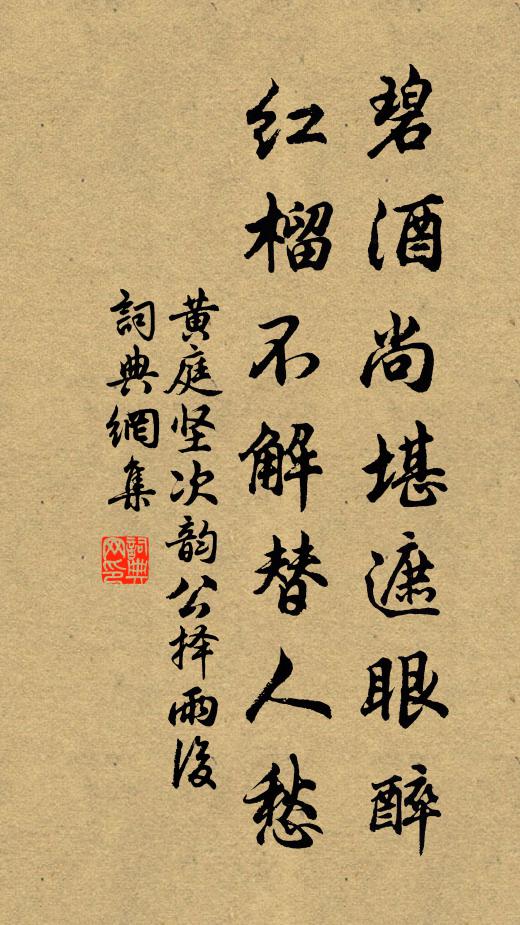 碧酒尚堪遮眼醉
红榴不解替人愁
黄庭坚次韵公择雨後
詞典網集
詞典网印